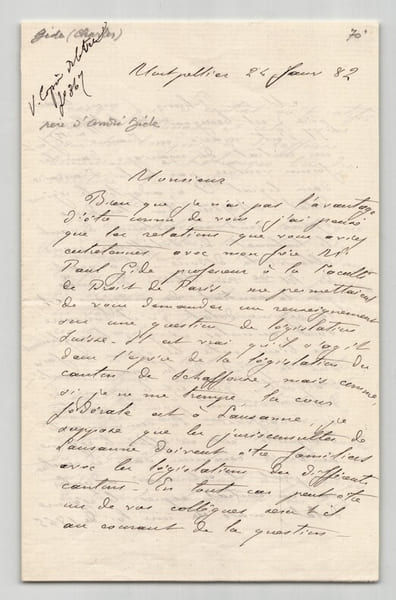 Gide (Charles)
70'
V. Copie
20367
père d'André Gide
Montpellier 24 Janv 82
Monsieur
Bien que je n'ai pas l'avantage
d'être connu de vous, j'ai pensé
que les relations que vous aviez
entretenues avec mon frère Mr
Paul Gide professeur à la Faculté
de Droit de Paris, me permettaient
de vous demander un renseignement
sur une question de législation
suisse. Il est vrai qu'il s'agit
dans l'espèce de la législation du
canton de Schaffouse, mais comme,
si je ne me trompe, la cour
fédérale est à Lausanne, je
suppose que les jurisconsultes de
Lausanne doivent être familiers
avec les législations des différents
cantons. En tout cas peut-être
un de vos collègues serait-il
au courant de la question.